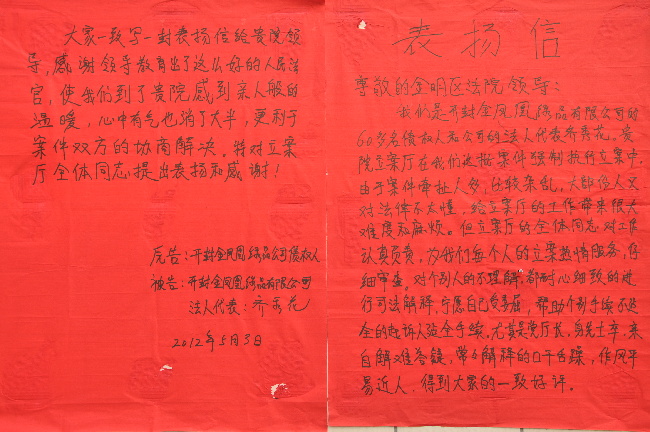 表扬信
尊敬的金明区法院领导:
我们是开封金凤凰饰品有限公司的
60多名债权人和公司的法人代表齐秀花。贵
院立案厅在我们这批案件强制执行立案中,
由于案件牵扯人多,比较杂乱,大部份人又
对法律不太懂,给立案厅的工作带来很大
难度和麻烦。但立案厅的全体同志对工作
认真负责,为我们每个人的立案热情服务,仔
细审查,对个别人的不理解,都耐心细致的进
行司法解释,宁愿自己受委屈,帮助个别手续不达
全的起诉人造全手续。尤其是厅长,身先士卒,亲
自解难答疑,常常解释的口干舌燥,作风平
易近人,得到大家的一致好评。
大家一致写一封表扬信给贵院领
导,感谢领导教育出了这么好的人民法
官,使我们到了贵院感到亲人般的
温暖,心中有气也消了大半,更利于
案件双方的协商解决。特对立案
厅全体同志提出表扬和感谢!
原告:开封金凤凰饰品公司债权人
被告:开封金凤凰饰品有限公司
法人代表:齐秀花
2012年5月3日